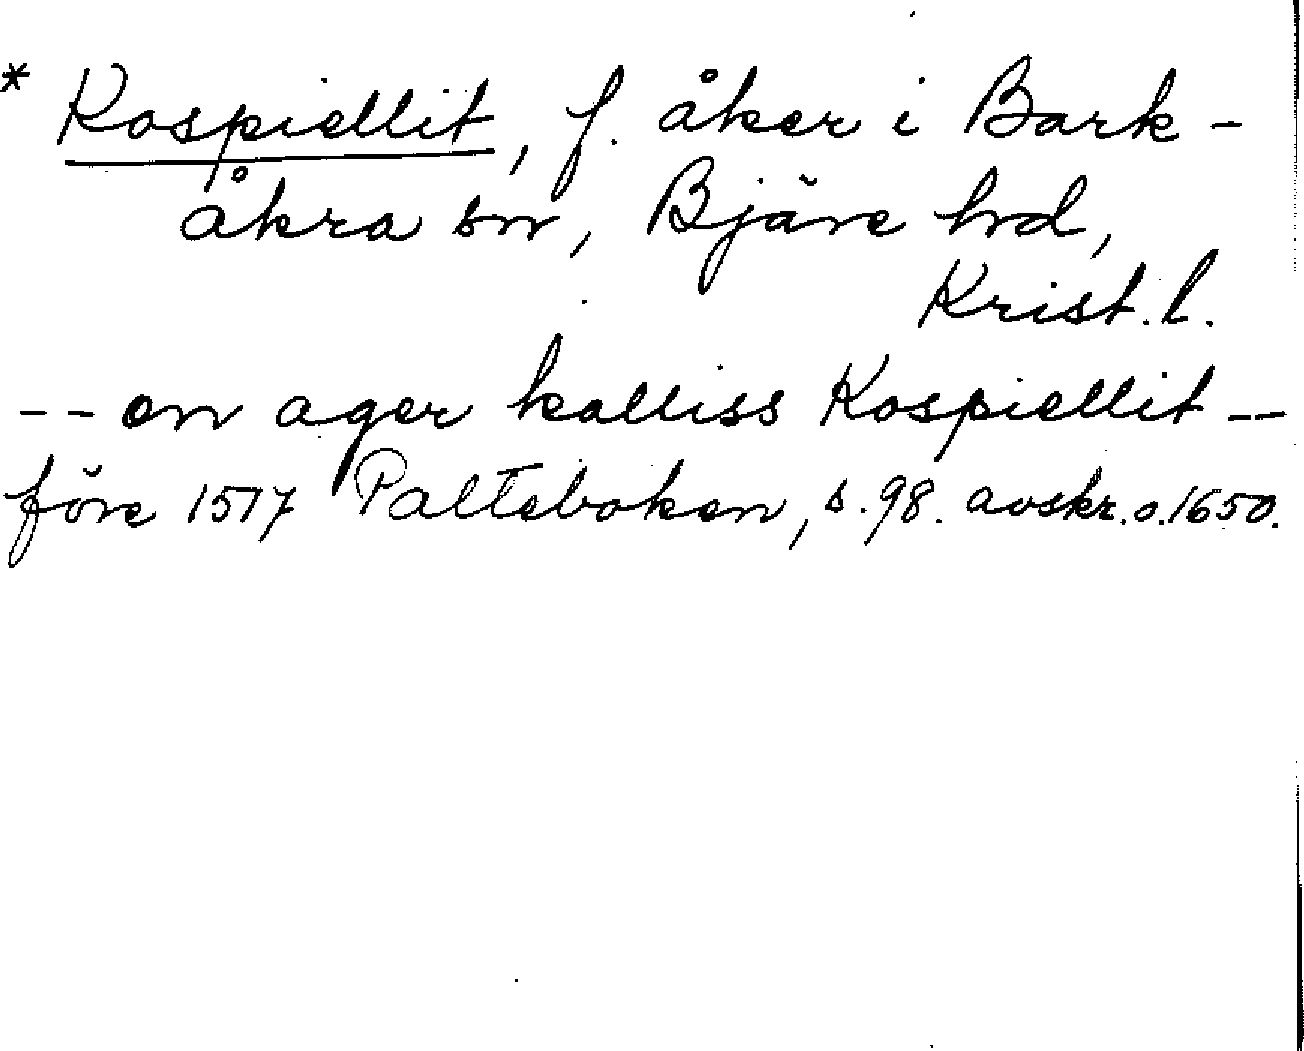 * Kospiellit, f. åker i Bark-
åkra sn, Bjäre hd,
Krist. l.
-- en ager kalliss Kospiellit --
före 1517 Palteboken, s. 98. avskr. o. 1650.